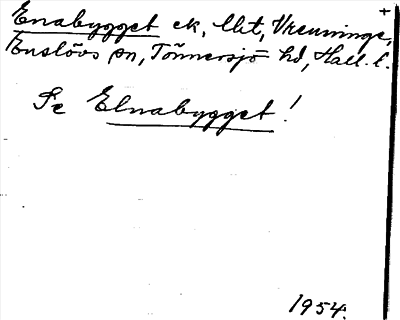 Enabygget ek, lht, Vrenninge,
Enslövs sn, Tönnersjö hd, Hall. l.
Se Elnabygget!
1954.